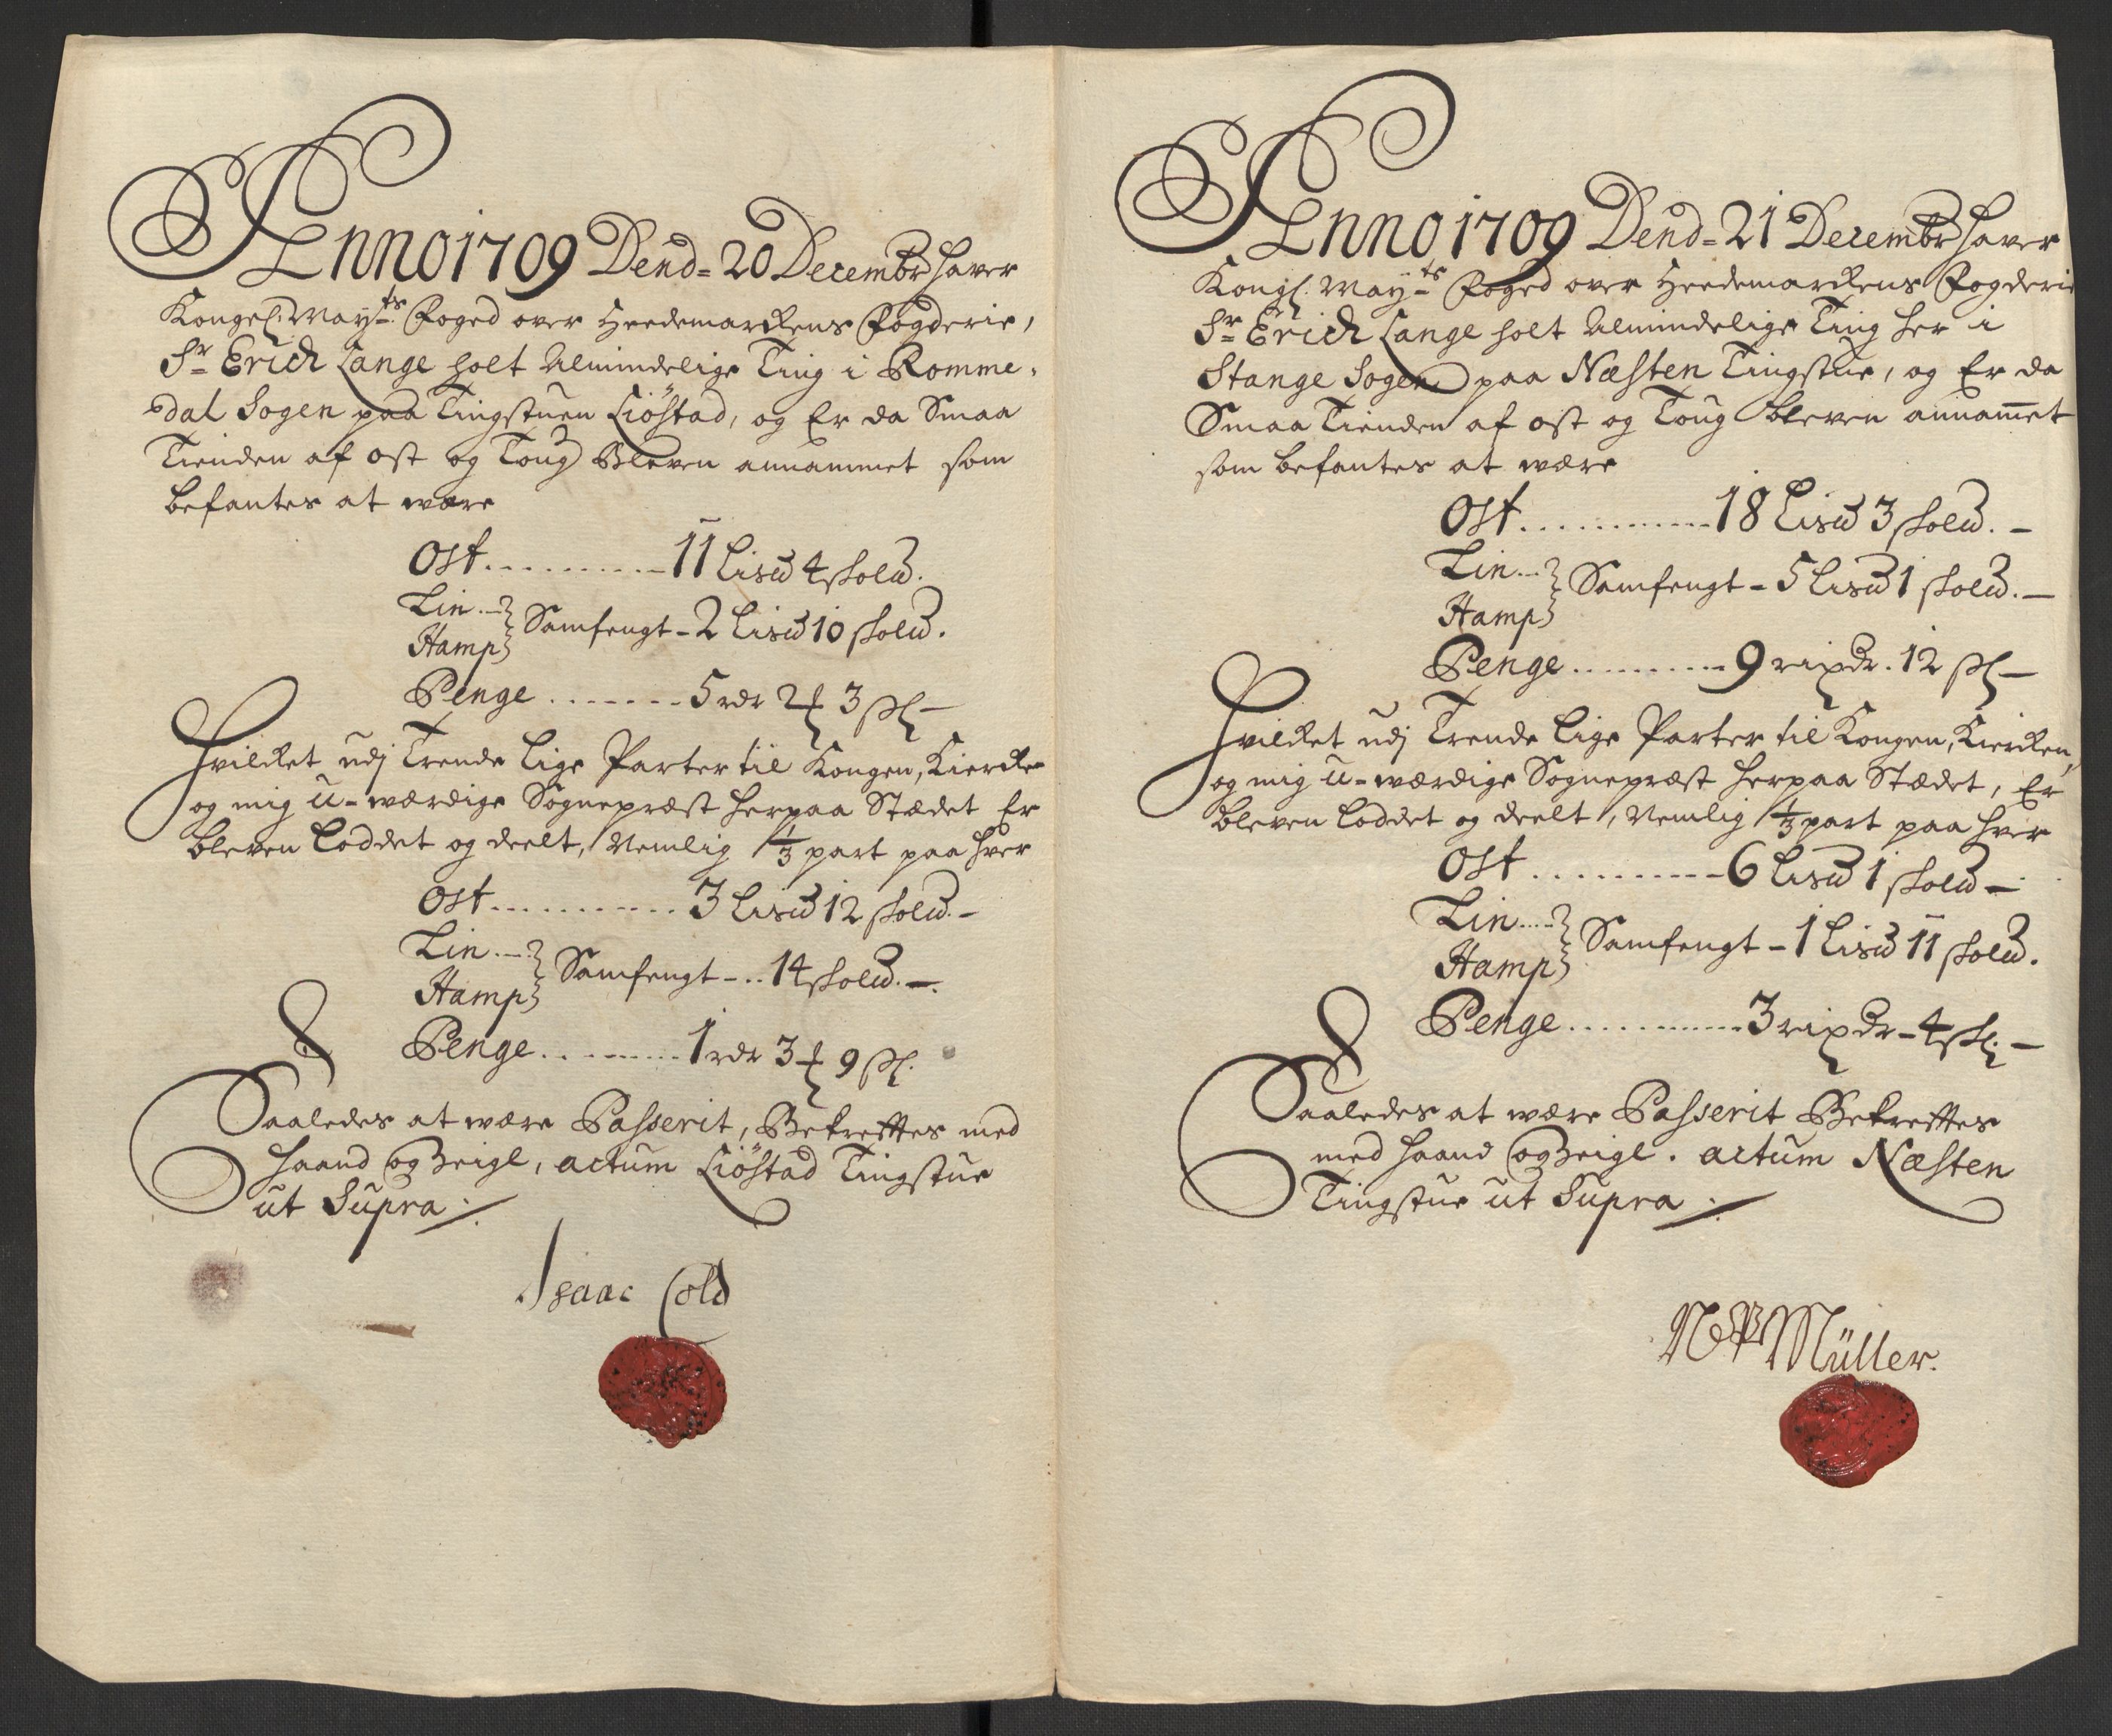 Anno 1709 Dend= 20 Decembr haver
Kongel: Mayts: Foged over Heedemarckens Fogderie,
Sr Erich Lange holt Almindelige Ting i Romme,
dal Sogen paa Tingstuen Liöstad, og Er da Smaa
Tienden af Ost og Toug Bleven annammet som
befantes at være
Ost .......... 11 Lis℔ 4 skol℔.
Lin ... } Samfengt - 2 Lis℔ 10 skol℔.
Hamp }
Penge ....... 5 rdr 2 ƒ 3 sh -
Hvilket udj Trende Lige Parter til Kongen, Kiercken
og mig u-værdige Sognepræst herpaa Stædet Er
bleven Loddet og deelt, Nemlig 1/3 part paa hver
Ost .......... 3 Lis℔ 12 skol℔. -
Lin ... } Samfengt - .. 14 skol℔. -.
Hamp }
Penge ......... 1 rdr 3 ƒ 9 sh.
Saaledes at være Passerit, Bekreftes med
Haand og Zeigl, actum Liöstad Tingstue
ut Supra ./.
Isaac Cold
Anno 1709 Dend= 21 Decembr haver
Kongl. Mayts Foged over Heedemarckens Fogderie
Sr Erich Lange holt Almindelige Ting her i
Stange Sogen paa Næsten Tingstue, og Er da
Smaa Tienden af Ost og Toug bleven anname̅t
som befantes at være
Ost ............ 18 Lis℔ 3 skol℔. -
Lin ... } Samfengt - 5 Lis℔ 1 skol℔. -
Hamp }
Penge .......... 9 rixdr. 12 sh -
Hvilket udj Trende Lige Parter til Kongen, Kiercken,
og mig u-værdige Sognepræst herpaa Stædet, Er
bleven Loddet og deelt, Nemlig 1/3 part paa hver
Ost ............ 6 Lis℔ 1 skol℔ -
Lin .... } Samfengt - 1 Lis℔ 11 skol℔.
Hamp }
Penge ........... 3 rixdr - 4 sh. -
Saaledes at være Passerit Bekreftes
med Haand og Zeigl. actum Næsten
Tingstue ut Supra ./.
Müller.